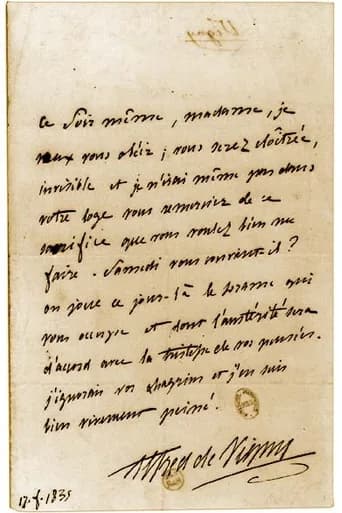 Vigny
ce soir même, madame, je
veux vous obéir ; vous serez cloîtrée,
invisible et je n'irai même pas dans
votre loge vous remercier de ce
sacrifice que vous voulez bien me
faire. Samedi vous convient-il ?
on joue ce jour-là le drame qui
vous occupe et dont l'austérité sera
d'accord avec la tristesse de vos pensées.
j'ignorais vos chagrins et j'en suis
bien vivement peiné.
Alfred de Vigny
17. f. 1835